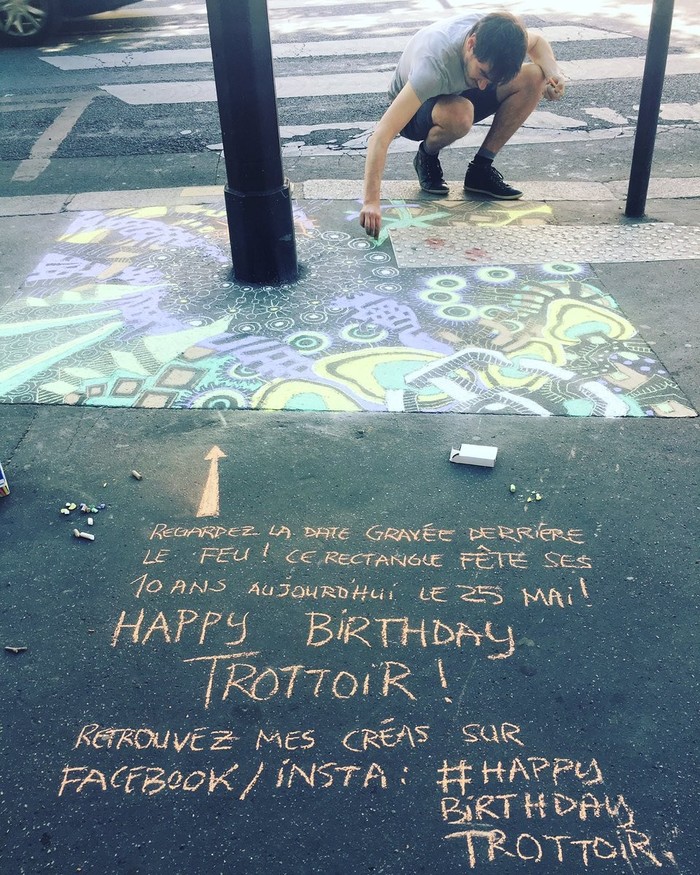 REGARDEZ LA DATE GRAVÉE DERRIÈRE
LE FEU! CE RECTANGLE FÊTE SES
10 ANS AUJOURD'HUI LE 25 MAI!
HAPPY BIRTHDAY
TROTTOIR!
RETROUVEZ MES CRÉAS SUR
FACEBOOK/INSTA: #HAPPY
BIRTHDAY
TROTTOIR.